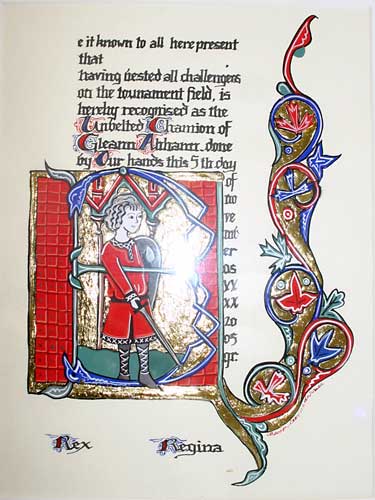 e it known to all here present
that
having bested all challengers
on the tournament field, is
hereby recognised as the
Unbelted Chamion of
Gleann Abhann, done
by Our hands this 5th day
of
no
ve
mb
er
as
xx
xx
20
05
gr.
Rex Regina